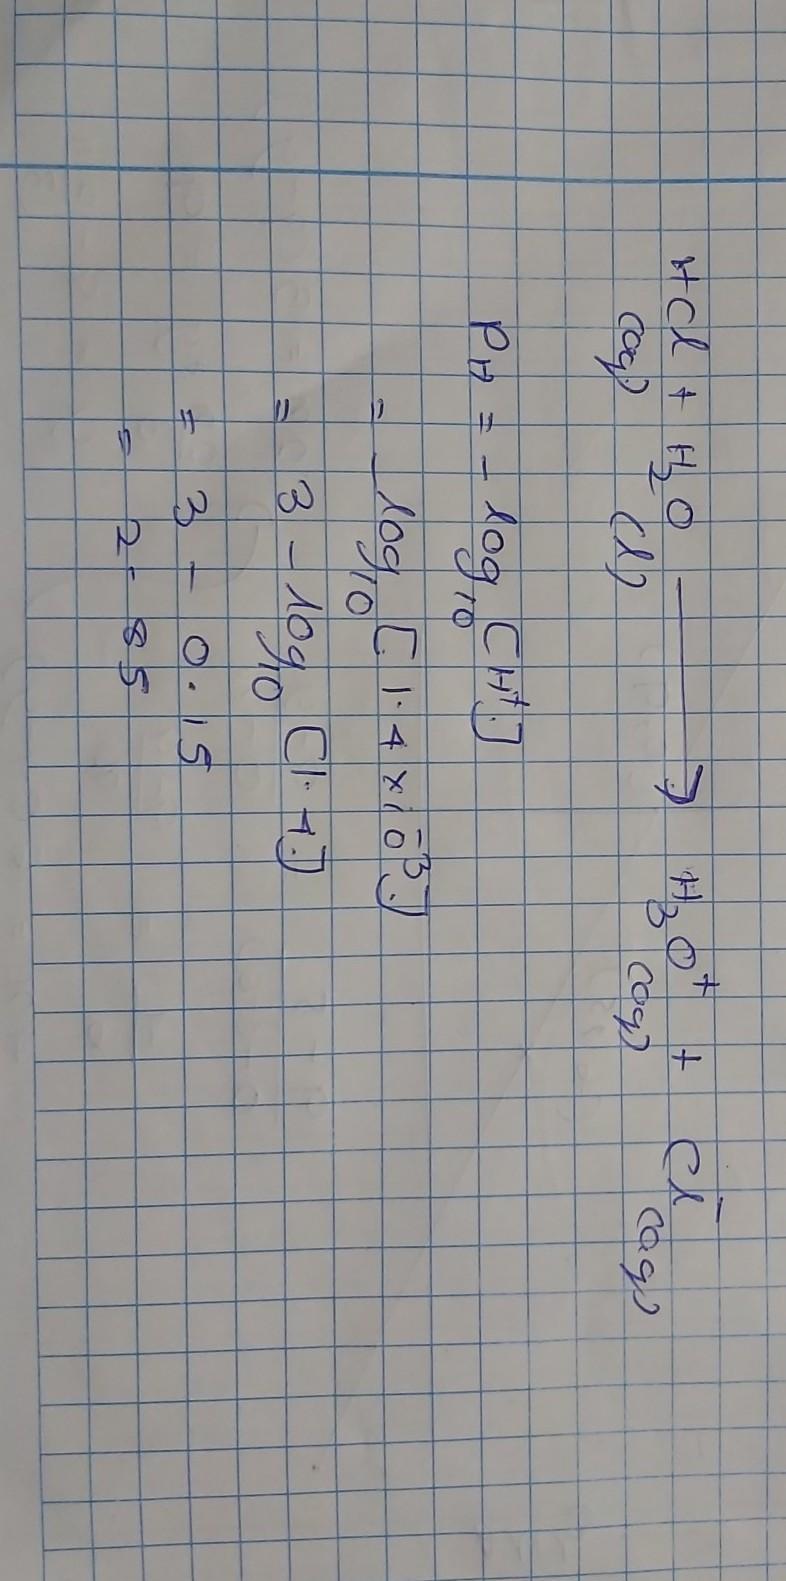 HCl + H₂O ⟶ H₃O⁺ + Cl⁻
(aq) (l) (aq) (aq)
PH = - log₁₀ [H⁺]
= - log₁₀ [1.4 × 10⁻³]
= 3 - log₁₀ [1.4]
= 3 - 0.15
= 2.85